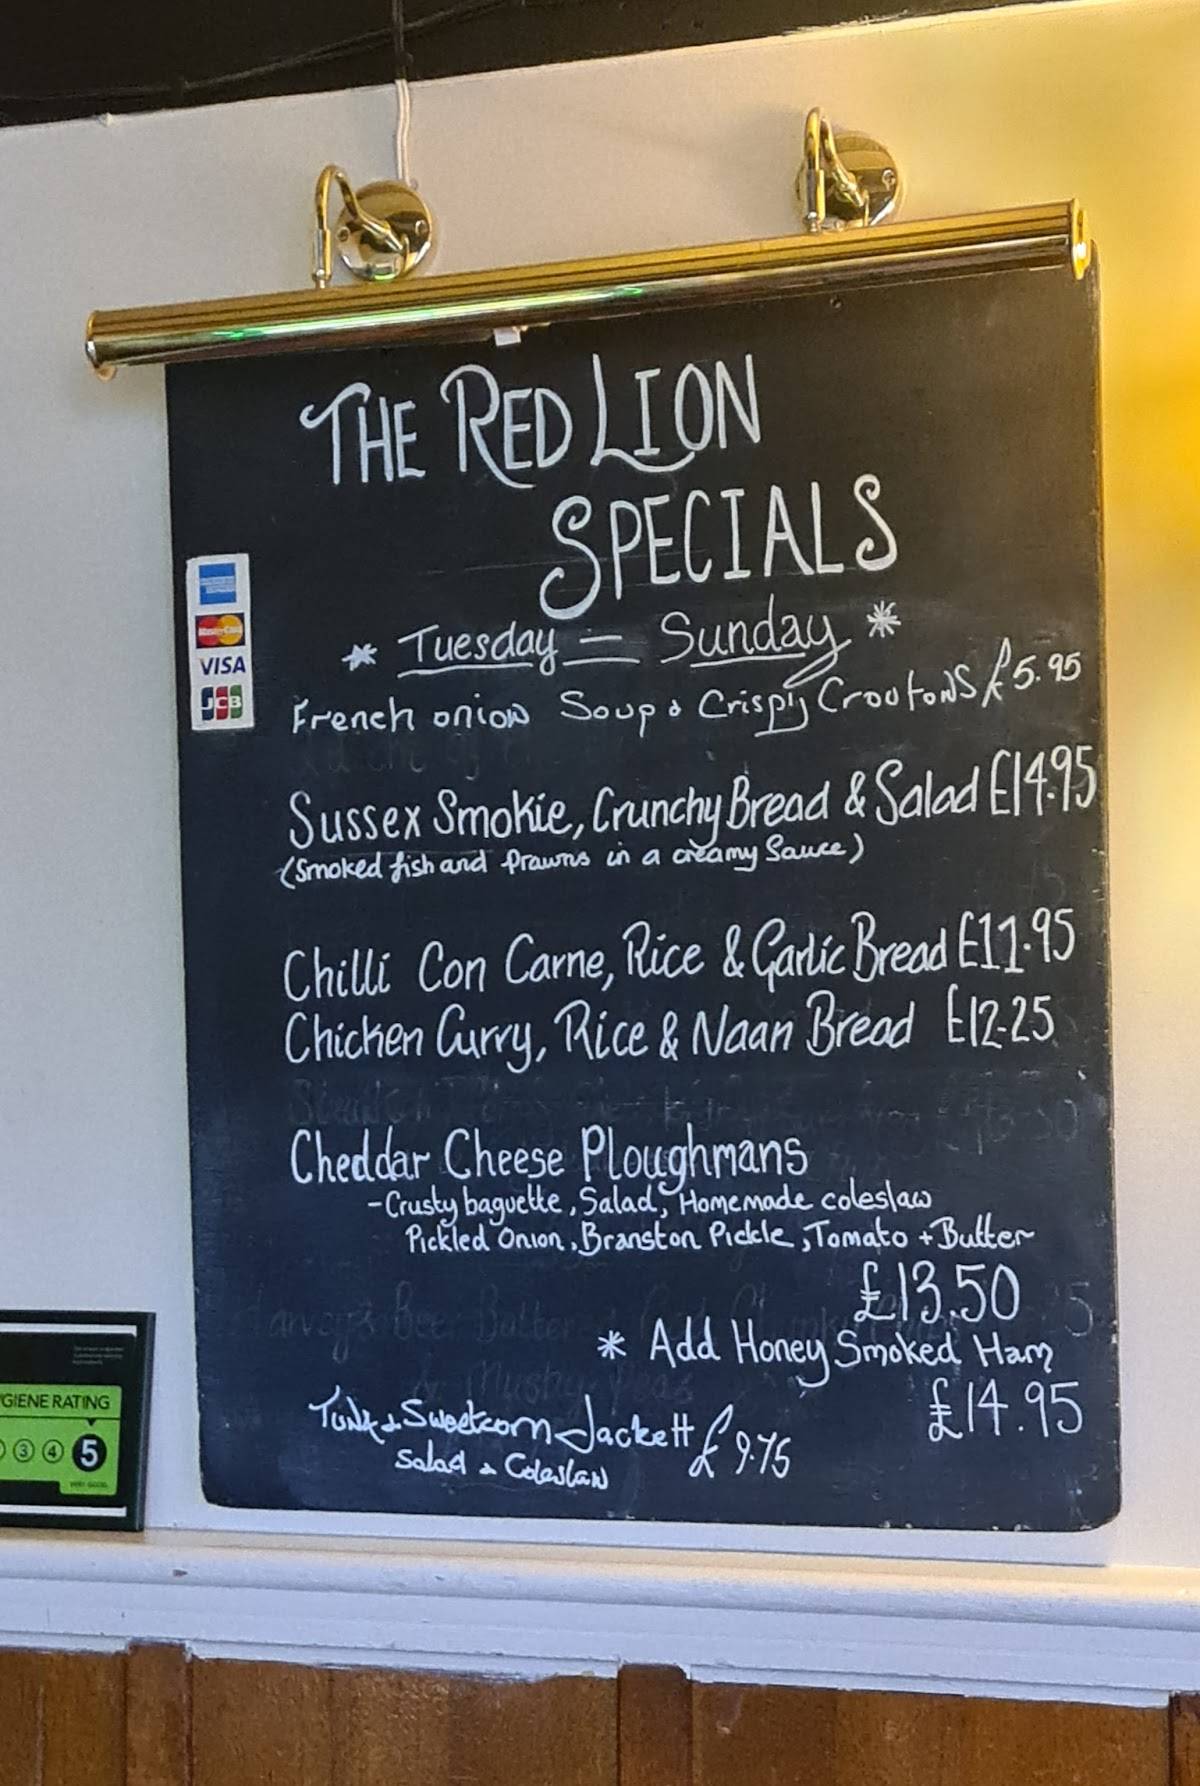 THE RED LION
SPECIALS
* Tuesday = Sunday *
French onion Soup & Crispy Croutons £5.95
Sussex Smokie, Crunchy Bread & Salad £14.95
(Smoked fish and Prawns in a creamy Sauce)
Chilli Con Carne, Rice & Garlic Bread £11.95
Chicken Curry, Rice & Naan Bread £12.25
Cheddar Cheese Ploughmans
-Crusty baguette, Salad, Homemade coleslaw
Pickled Onion, Branston Pickle, Tomato + Butter
£13.50
* Add Honey Smoked Ham
£14.95
Tuna & Sweetcorn Jackett £9.75
Salad & Coleslaw
AMERICAN EXPRESS
MasterCard
VISA
JCB
GIENE RATING
3 4 5
VERY GOOD